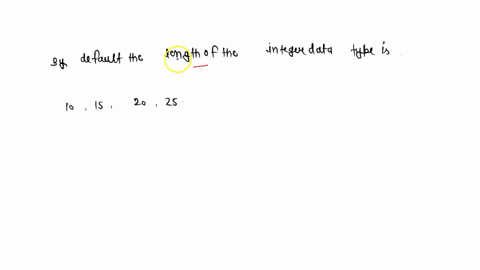 By default the length of the integer data type is
10 , 15 , 20 , 25